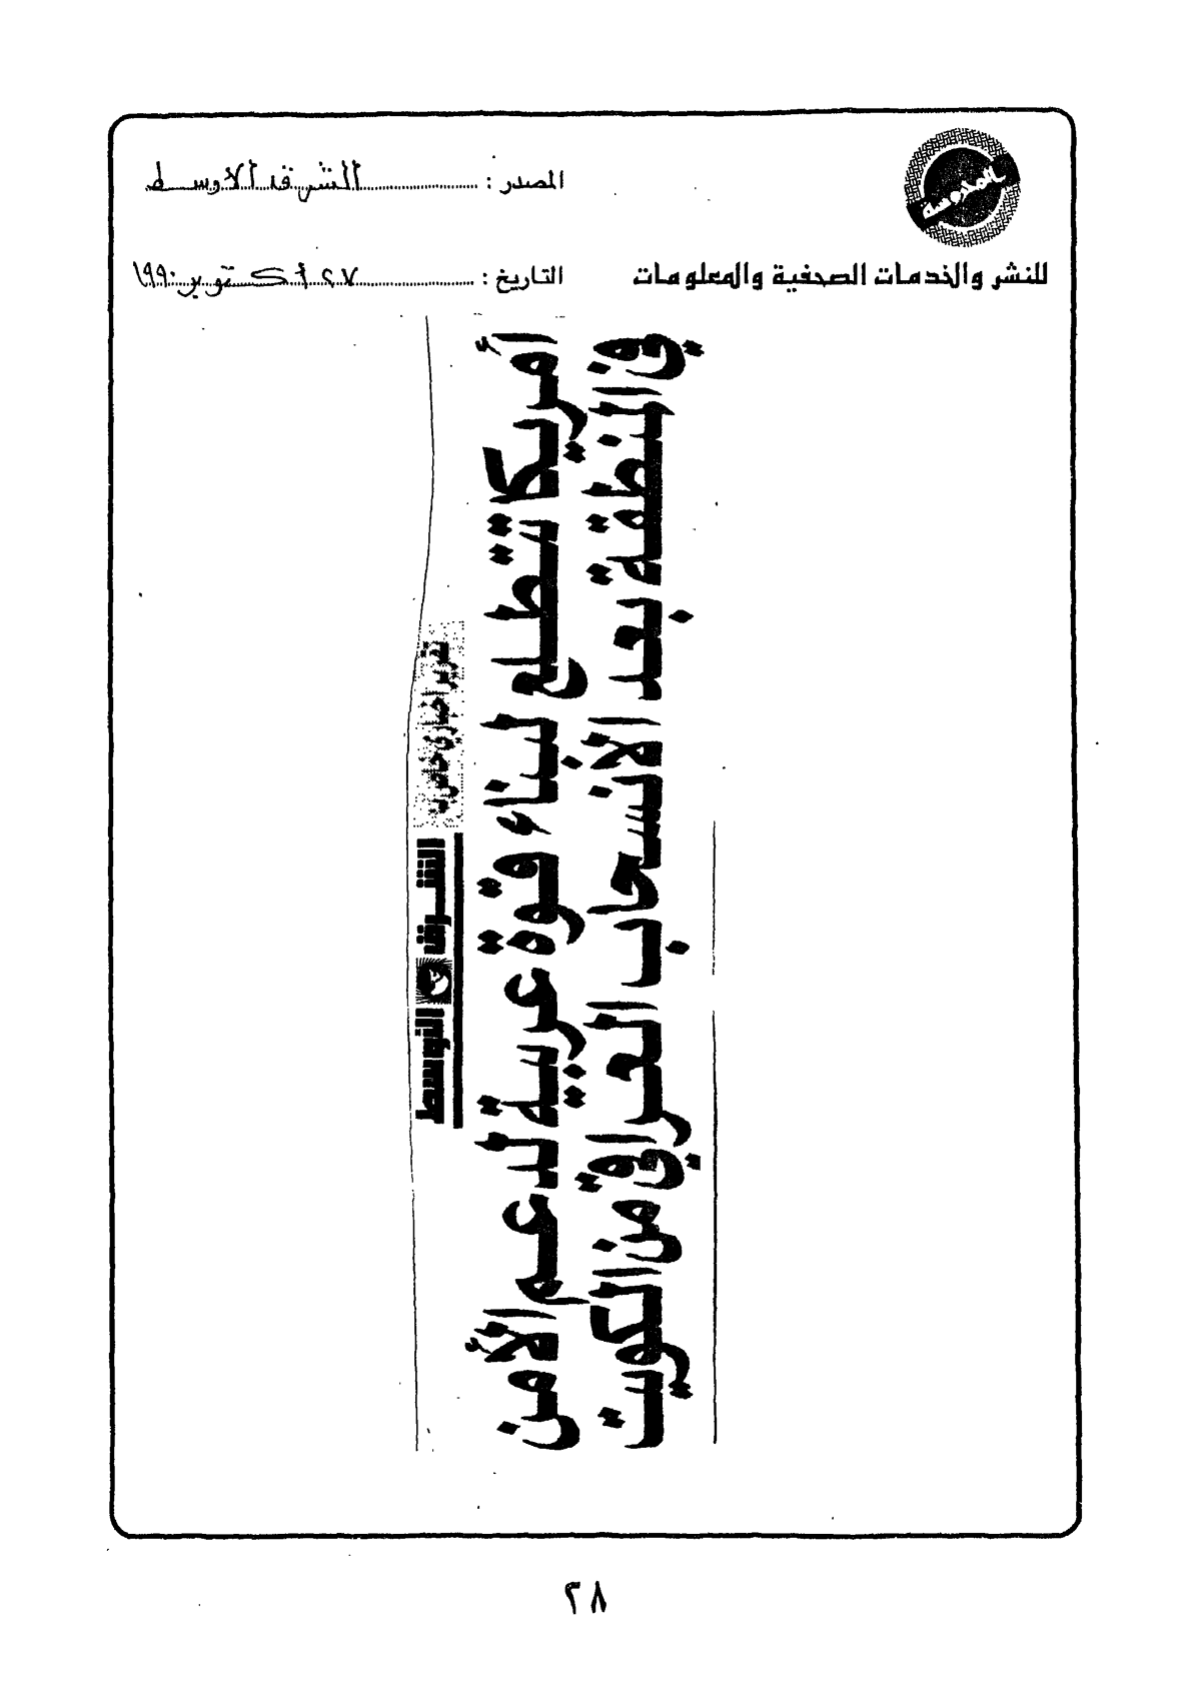 المصدر : الشرق الأوسط
للنشر والخدمات الصحفية والمعلومات
التاريخ : ٢٧ أكتوبر ١٩٩٠
تقرير اخباري خاص بـ
الشرق الاوسط
أمريكا تتطلع لبناء قوة عربية لدعم الأمن
في المنطقة بعد الانسحاب العراقي من الكويت
٢٨